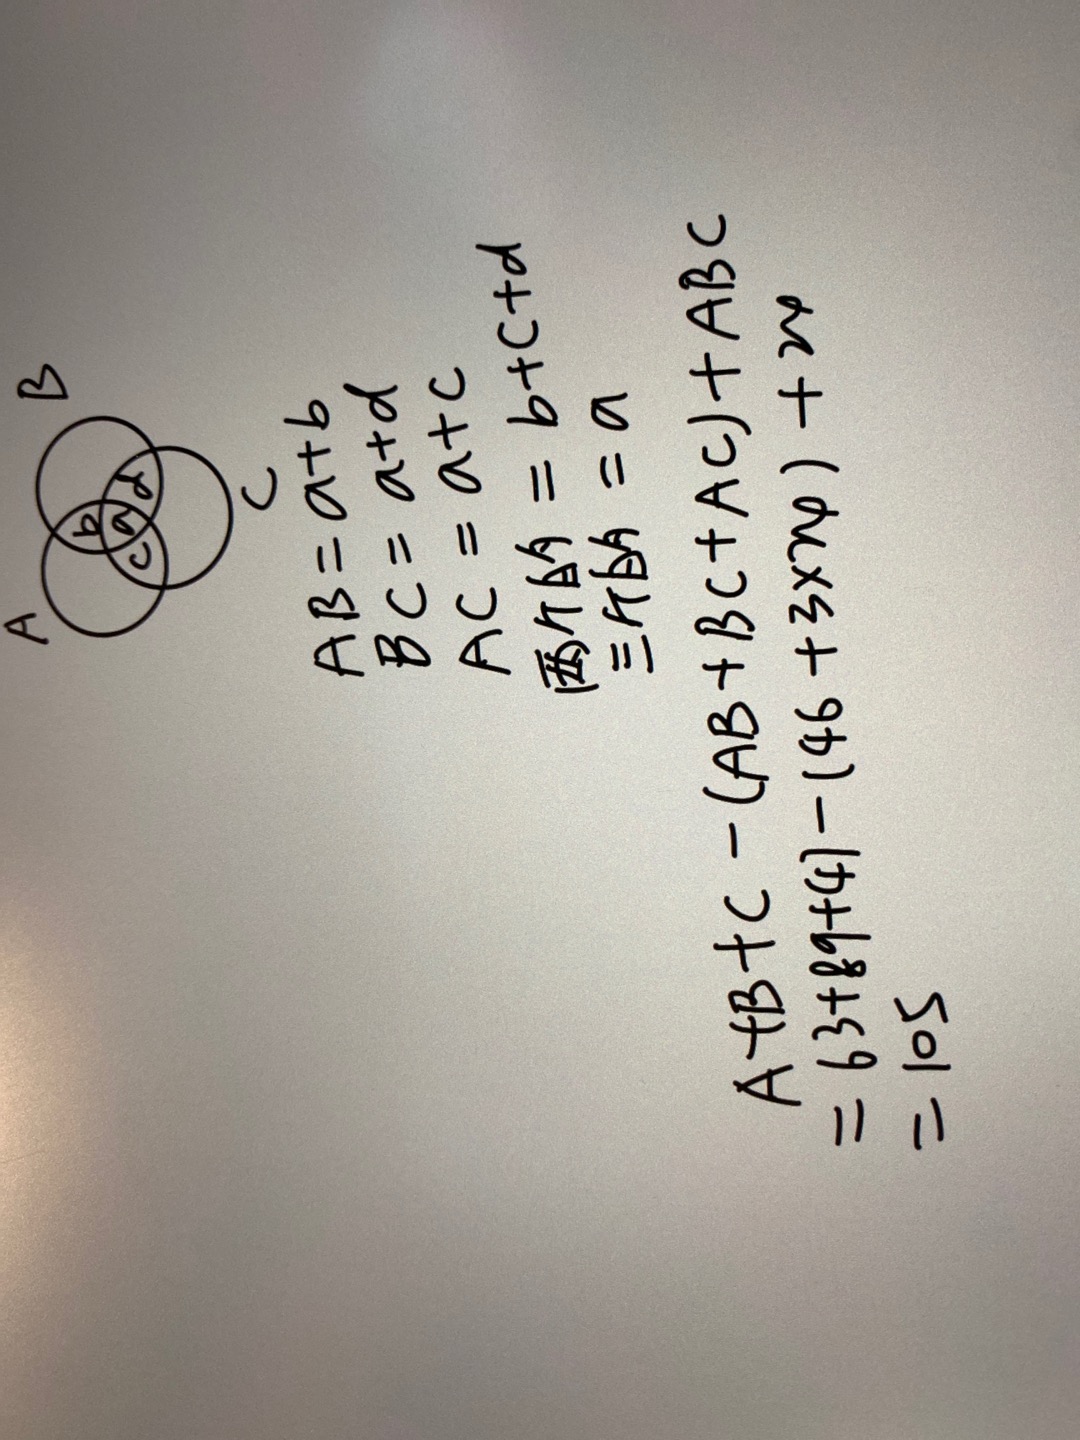 A B
b
c a d
C
AB = a+b
BC = a+d
AC = a+c
两个圈 = b+c+d
三个圈 = a
A+B+C-(AB+BC+AC)+ABC
= 63+89+41-(46+3×24)+24
= 105